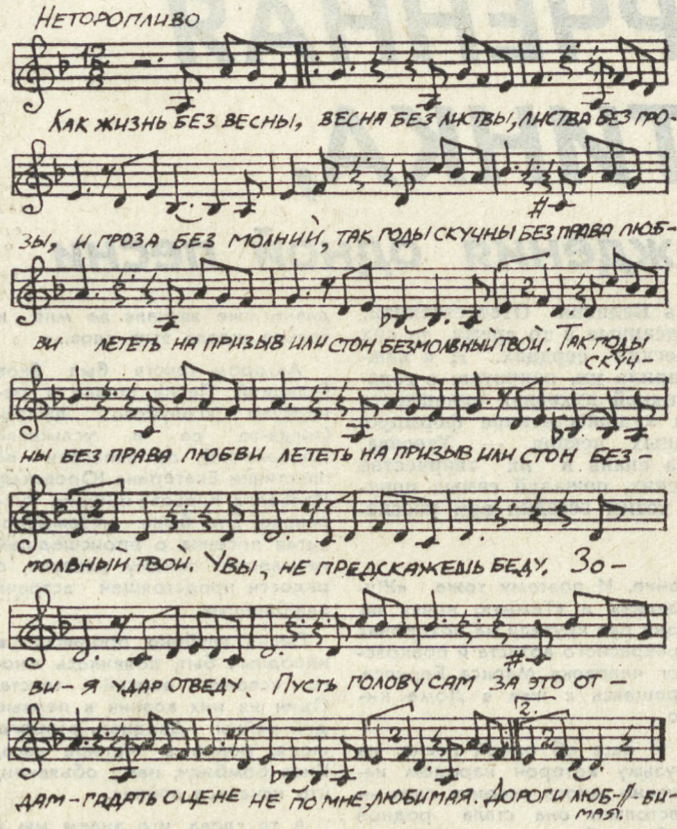 Неторопливо
Как жизнь без весны, весна без листвы, листва без гро-
зы, и гроза без молний, так годы скучны без права люб-
ви лететь на призыв или стон безмолвный твой. Так годы
скуч-
ны без права любви лететь на призыв или стон без-
молвный твой. Увы, не предскажешь беду. Зо-
ви – я удар отведу. Пусть голову сам за это от-
дам – гадать о цене не по мне, любимая. Дороги люб-//-би-
мая.